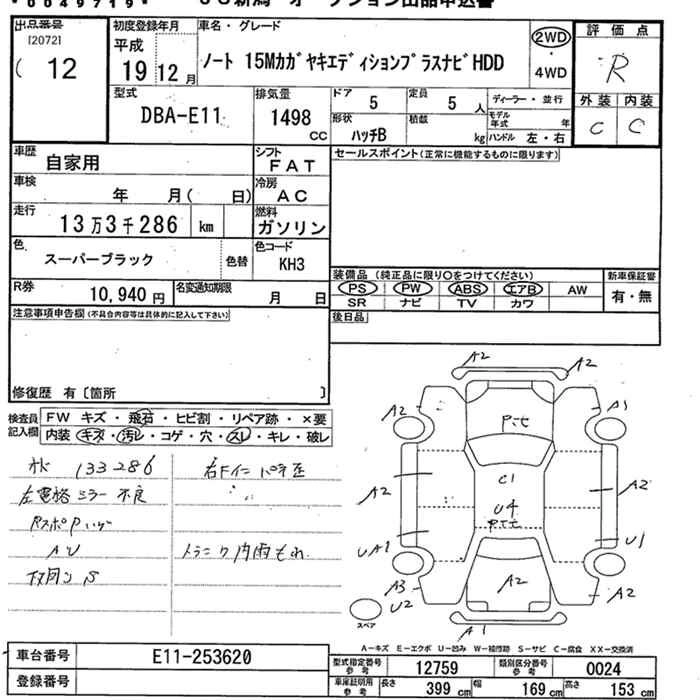 出品番号
[2072]
12
初度登録年月
平成
19 12 月
車名・グレード
ノート 15MカガヤキエディションプラスナビHDD
2WD
・
4WD
評価点
R
外装 内装
C C
型式
DBA-E11
排気量
1498 CC
ドア 5
定員 5 人
ディーラー・並行
形状 ハッチB
積載 kg
モデル年式 年
ハンドル 左・右
車歴 自家用
シフト FAT
車検 年 月( 日)
冷房 AC
走行 13万3千286 km
燃料 ガソリン
色 スーパーブラック
色替
色コード KH3
R券 10,940 円
名変通知期限 月 日
セールスポイント(正常に機能するものに限ります)
装備品 (純正品に限り〇をつけてください)
PS PW ABS エアB AW
SR ナビ TV カワ
新車保証書
有・無
後日品
注意事項申告欄(不具合内容等は具体的に記入して下さい)
修復歴 有〔箇所 〕
検査員記入欄
FW キズ・飛石・ヒビ割・リペア跡・×要
内装 キズ・汚レ・コゲ・穴・スレ・キレ・破レ
133286
左電格ミラー不良
トランク内雨もれ
A2
A2
A2
A1
P上セ
A2
C1
A2
U4
UA1
U1
A3
U2
A2
A2
A1
スペア
A-キズ E-エクボ U-凹み W-補修跡 S-サビ C-腐食 XX-交換済
車台番号 E11-253620
登録番号
型式指定番号 参考 12759
類別区分番号 参考 0024
車庫証明用 参考
長さ 399 cm
幅 169 cm
高さ 153 cm